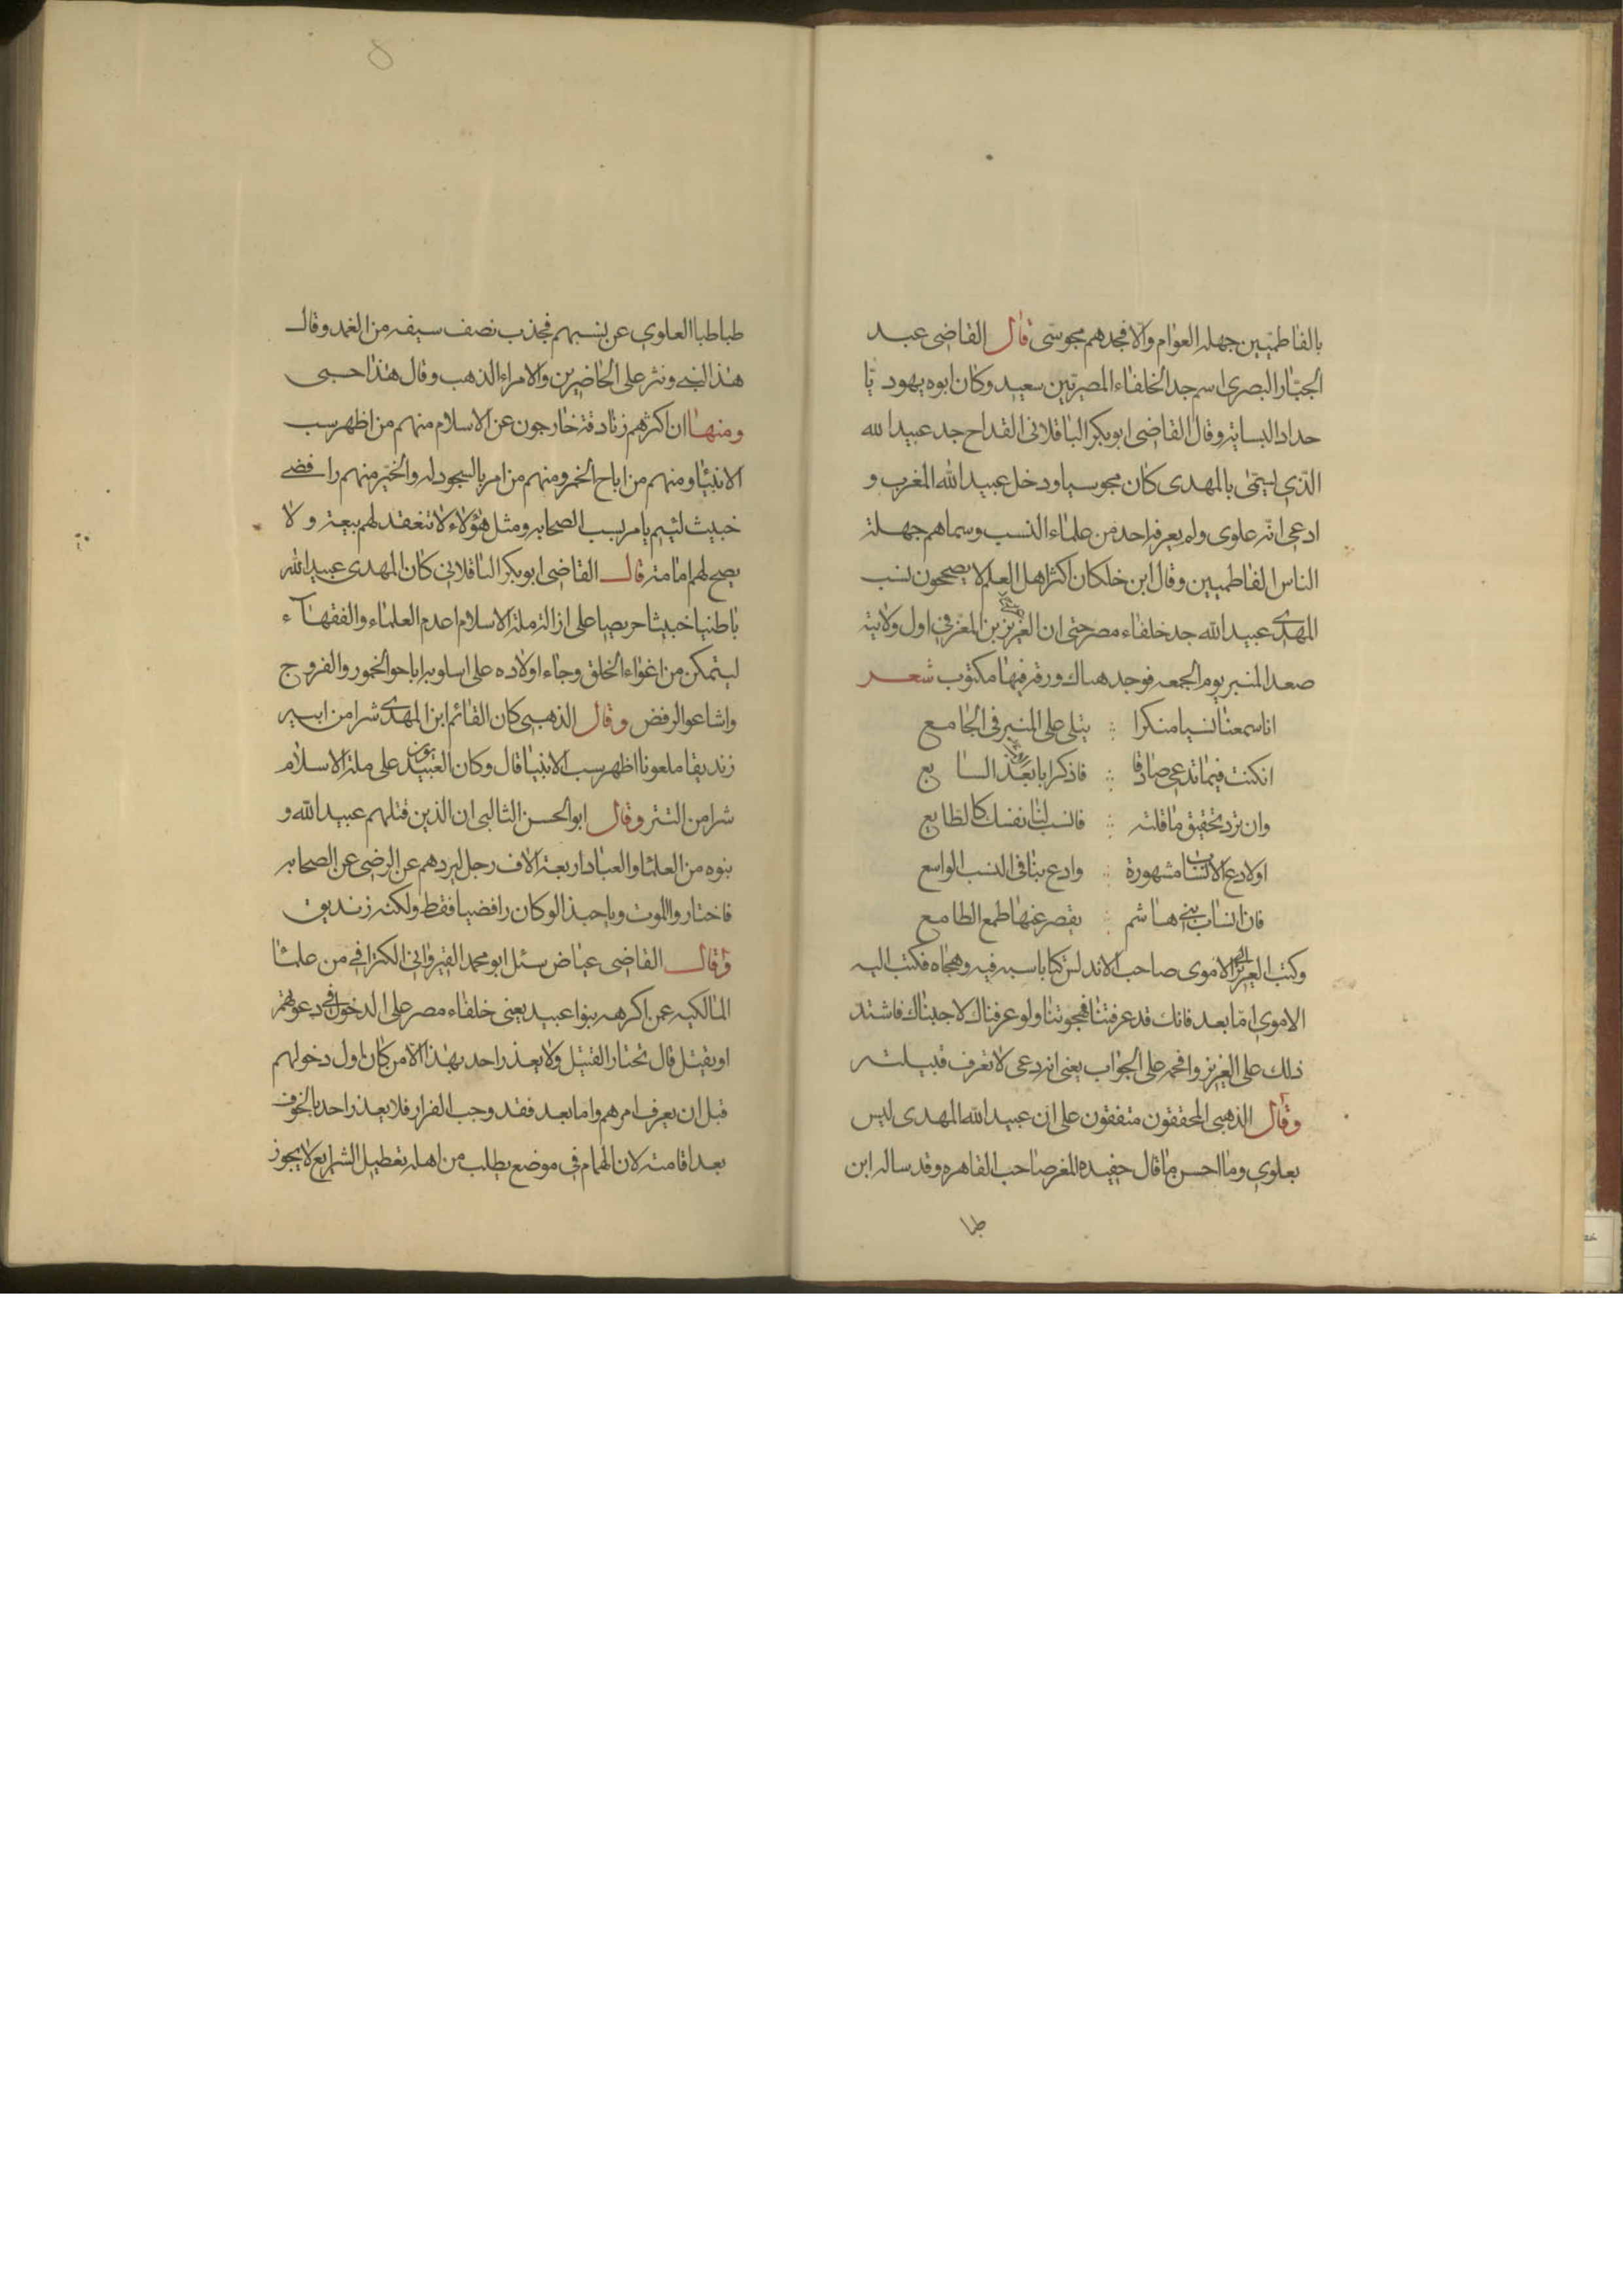 بالفاطميين جهلة العوام والا فجدهم مجوسى قال القاضى عبد
الجبار البصرى اسم جد الخلفاء المصريين سعيد وكان ابوه يهوديا
حدادا لبسايته وقال القاضى ابو بكر الباقلانى القداح جد عبيد الله
الذى يسمى بالمهدى كان مجوسيا ودخل عبيد الله المغرب و
ادعى انه علوى ولم يعرفه احد من علماء النسب وسماهم جهلة
الناس الفاطميين وقال ابن خلكان اكثر اهل العلم لا يصححون نسب
المهدى عبيد الله جد خلفاء مصر حتى ان العزيز بن المعز فى اول ولايته
صعد المنبر يوم الجمعه فوجد هناك ورقة فيها مكتوب شعر
انا سمعنا نسبا منكرا ∴ يتلى على المنبر فى الجامع
ان كنت فيما تدعى صادقا ∴ فاذكر ابا بعد السابع
وان ترد تحقيق ما قلته ∴ فانسب لنا نفسك كالطايع
اولا دع الانساب مشهورة ∴ وادع بنا فى النسب الواسع
فان انساب بنى هاشم ∴ يقصر عنها طمع الطامع
وكتب العزيز الى الاموى صاحب الاندلس كتابا سبه فيه وهجاه فكتب اليه
الاموى اما بعد فانك قد عرفتنا فهجوتنا ولو عرفناك لاجبناك فاشتد
ذلك على العزيز وافحمه على الجواب يعنى انه دعى لا تعرف قبيلته
وقال الذهبى المحققون متفقون على ان عبيد الله المهدى ليس
بعلوى وما احسن ما قال حفيده المعز صاحب القاهره وقد ساله ابن
طبا
8
طباطبا العلوى عن نسبهم فجذب نصف سيفه من الغمد وقال
هذا نسبى ونثر على الحاضرين والامراء الذهب وقال هذا حسبى
ومنها ان اكثرهم زنادقة خارجون عن الاسلام منهم من اظهر سب
الانبيا ومنهم من اباح الخمر ومنهم من امر بالسجود له والخير منهم رافضى
خبيث لئيم يامر بسب الصحابه ومثل هؤلاء لا تنعقد لهم بيعة ولا
يصح لهم امامة قال القاضى ابو بكر الباقلانى كان المهدى عبيد الله
باطنيا خبيثا حريصا على ازالة ملة الاسلام اعدم العلماء والفقهاء
ليتمكن من اغواء الخلق وجاء اولاده على اسلوبه اباحوا الخمور والفروج
واشاعوا الرفض وقال الذهبى كان القائم ابن المهدى شرا من ابيه
زنديقا ملعونا اظهر سب الانبيا قال وكان العبيديون على ملة الاسلام
شرا من التتر وقال ابو الحسن الثالبى ان الذين قتلهم عبيد الله و
بنوه من العلما والعباد اربعة الاف رجل ليردهم عن الرضى عن الصحابه
فاختاروا الموت ويا حبذا لو كان رافضيا فقط ولكنه زنديق
وقال القاضى عياض سئل ابو محمد القيروانى الكنرافى من علما
المالكيه عمن اكرهه بنوا عبيد يعنى خلفاء مصر على الدخول فى دعوتهم
او يقتل قال تختار القتل ولا يعذر احد بهذا الامر كان اول دخولهم
قبل ان يعرف امرهم واما بعد فقد وجب الفرار فلا يعذر احد بالخوف
بعد اقامته لان المقام فى موضع يطلب من اهله تعطيل الشرايع لا يجوز